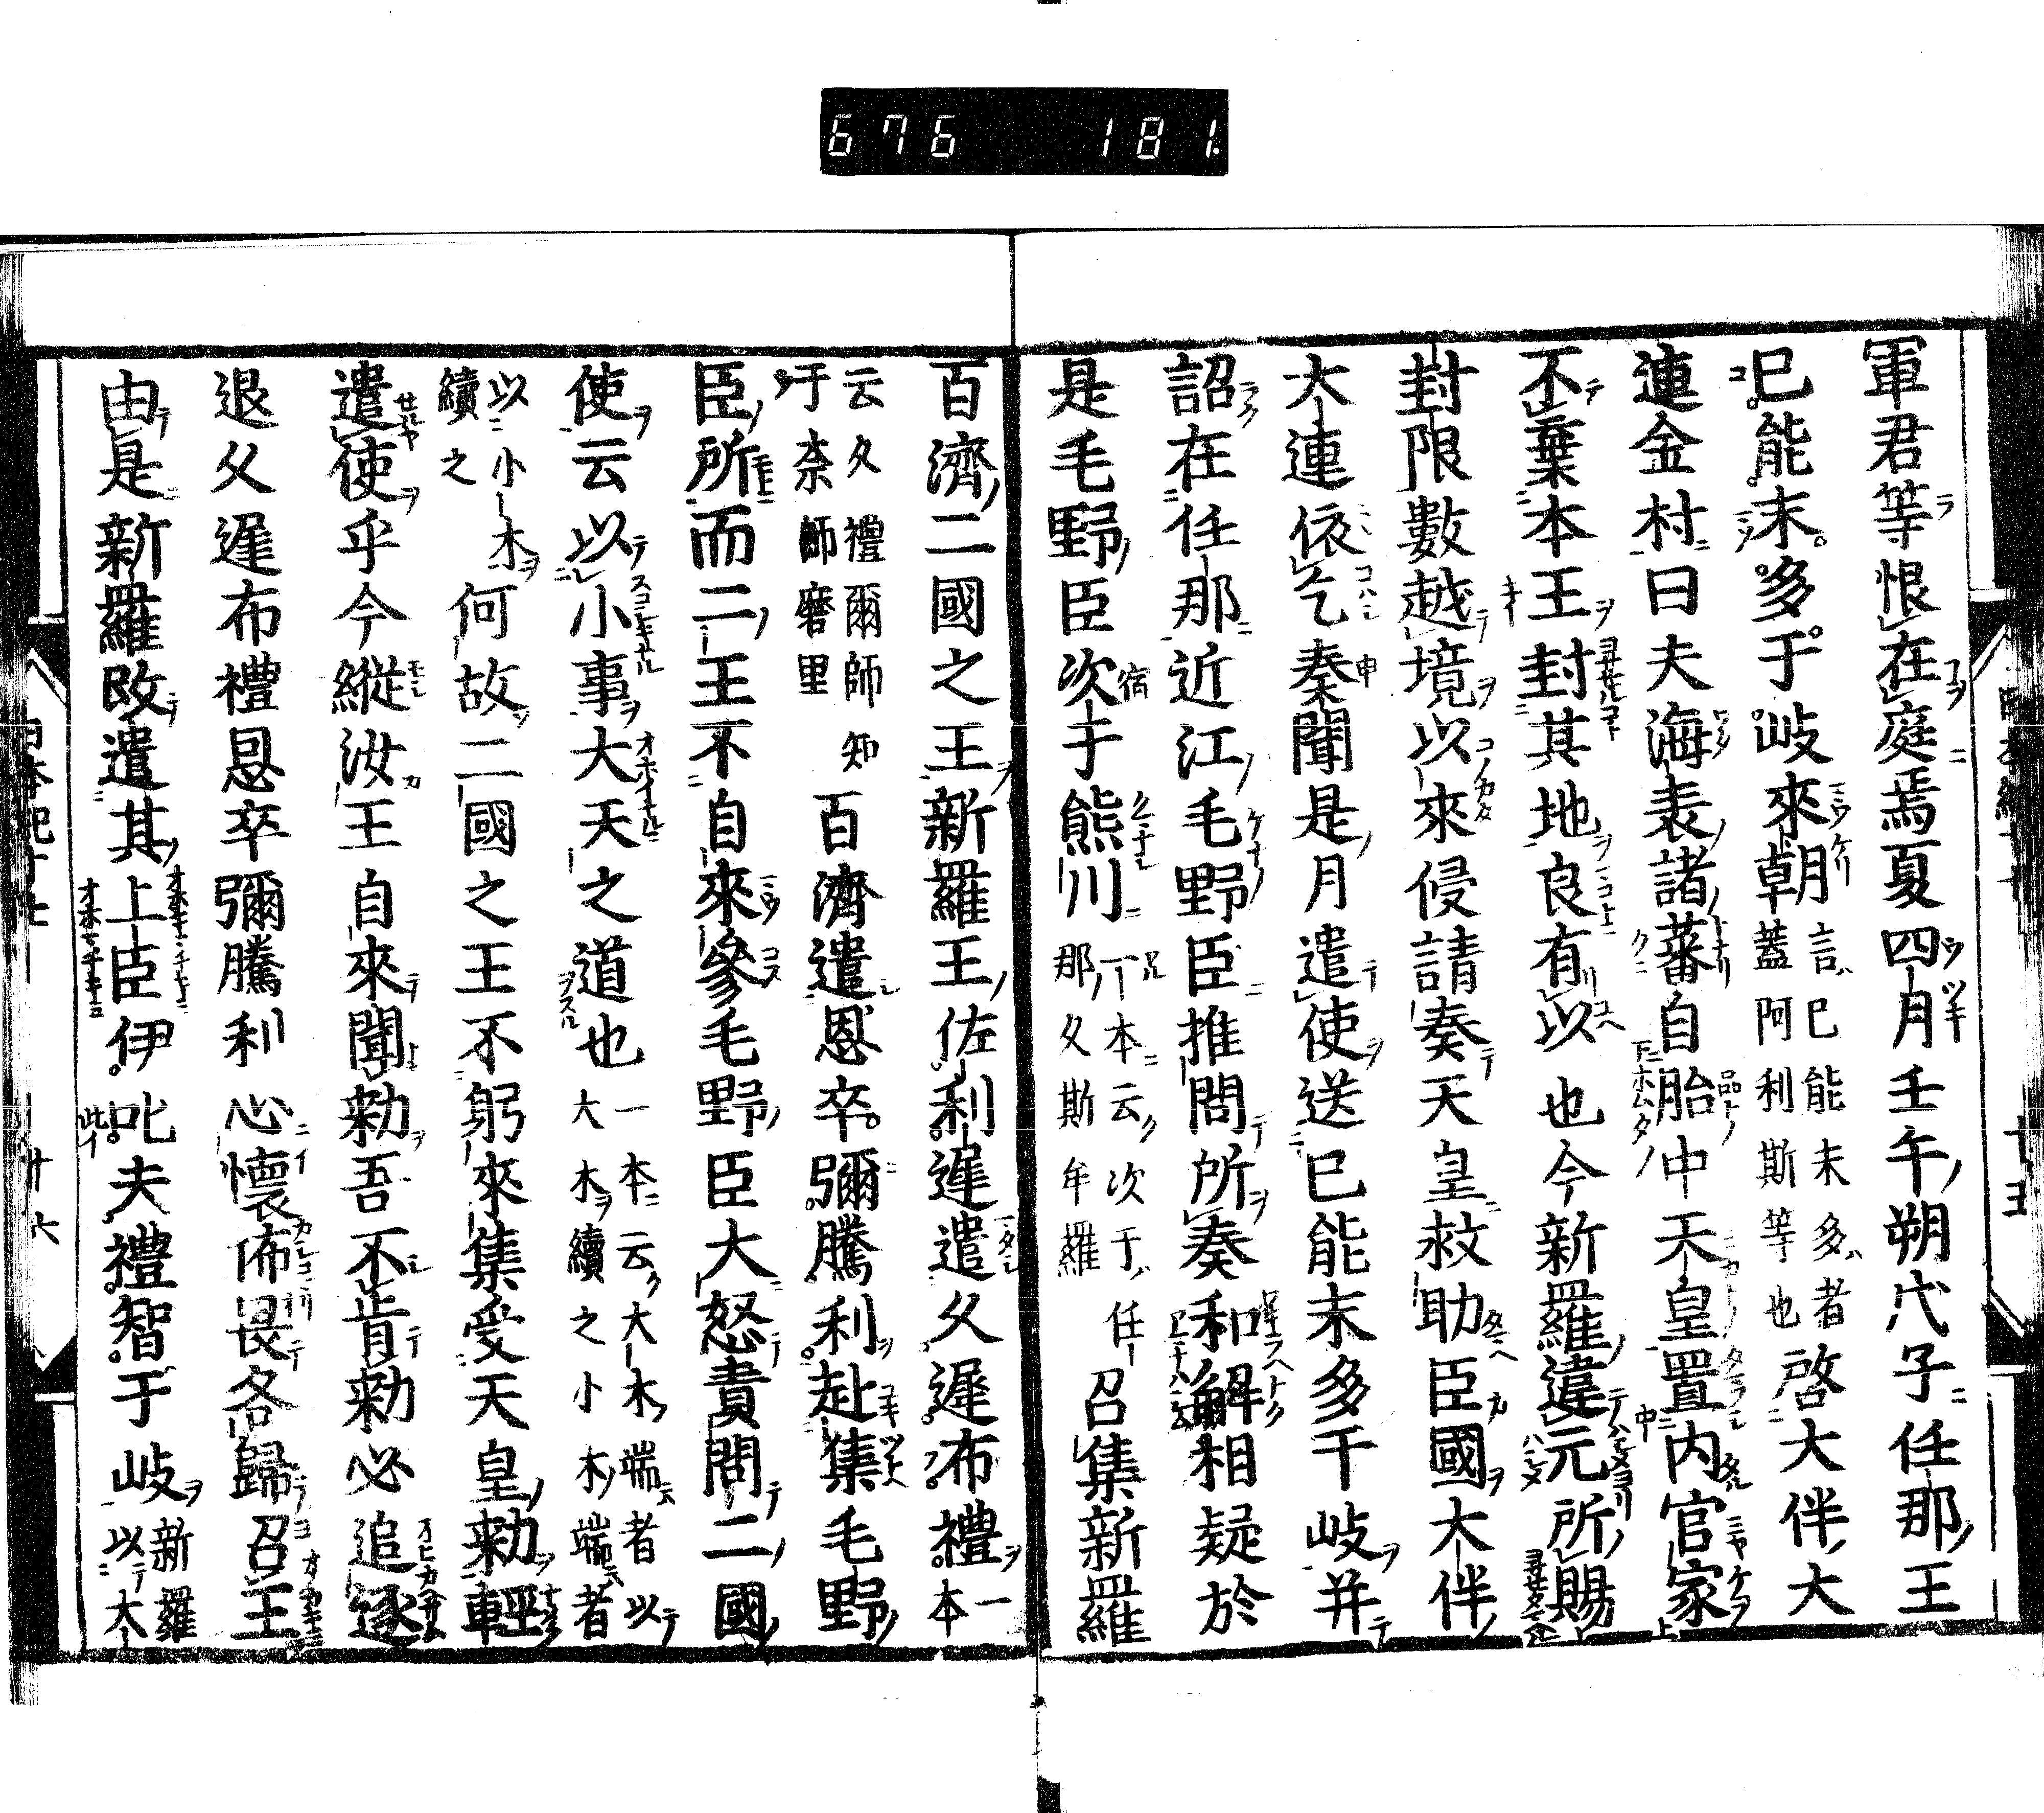 676 181.
軍君等恨在庭焉夏四月壬午朔戊子任那王
巳能末多于岐來朝言巳能末多者蓋阿利斯等也啓大伴大
連金村曰夫海表諸蕃自胎中天皇置内官家
不棄本王封其地良有以也今新羅違元所賜
封限數越境以來侵請奏天皇救助臣國大伴
大連依乞奏聞是月遣使送巳能末多干岐并
詔在任那近江毛野臣推問所奏和解相疑於
是毛野臣次于熊川一本云次于任那久斯牟羅召集新羅
百濟二國之王新羅王佐利遲遣久遲布禮一本
云久禮爾師知于奈師磨里百濟遣恩卒彌騰利赴集毛野
臣所而二王不自來參毛野臣大怒責問二國
使云以小事大天之道也一本云大木端者以大木續之小木端者
以小木續之何故二國之王不躬來集受天皇勅輕
遣使乎今縱汝王自來聞勅吾不肯勅必追逐
退久遲布禮恩卒彌騰利心懷怖畏各歸召王
由是新羅改遣其上臣伊叱夫禮智于岐新羅以大